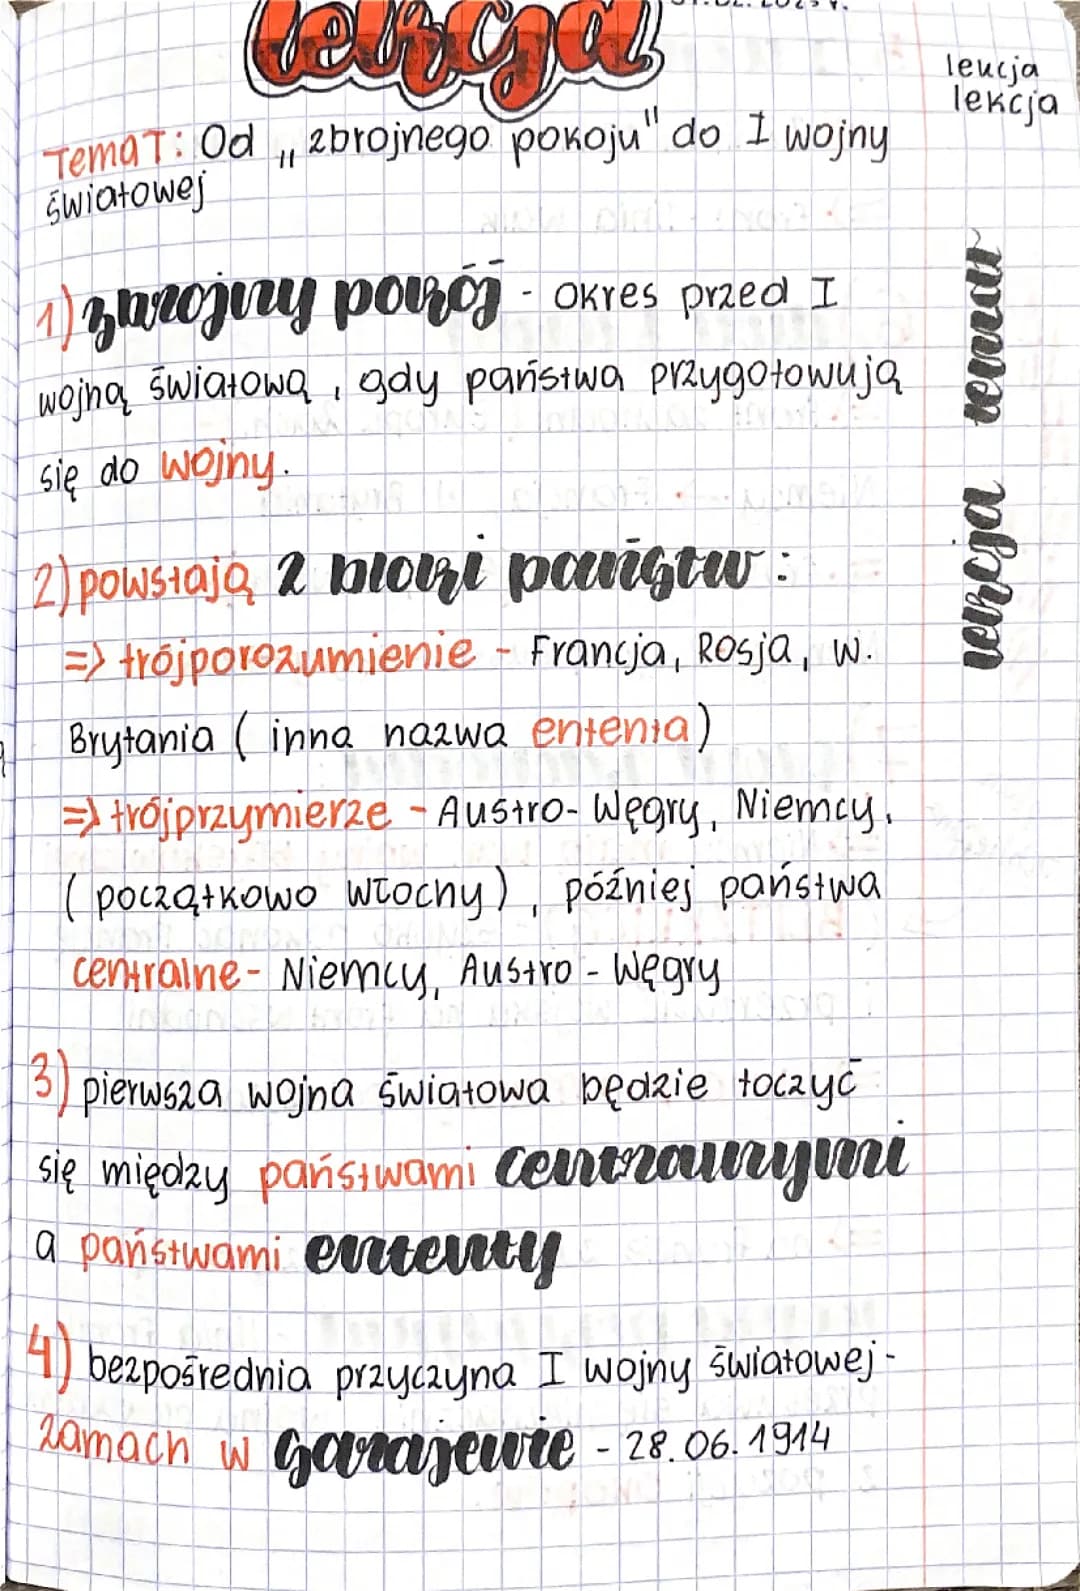 lekcja
leucja
lekcja
Temat: Od „zbrojnego pokoju" do I wojny
światowej
1) zbrojny pokój - okres przed I
wojną światową, gdy państwa przygotowują
się do wojny.
2) powstają 2 bloki państw:
=> trójporozumienie - Francja, Rosja, W.
Brytania ( inna nazwa ententa)
=> trójprzymierze - Austro-Węgry, Niemcy,
( początkowo Włochy), później państwa
centralne - Niemcy, Austro - Węgry
3) pierwsza wojna światowa będzie toczyć
się między państwami centralnymi
a państwami ententy
4) bezpośrednia przyczyna I wojny światowej -
zamach w Sarajewie - 28.06.1914
lekcja temat